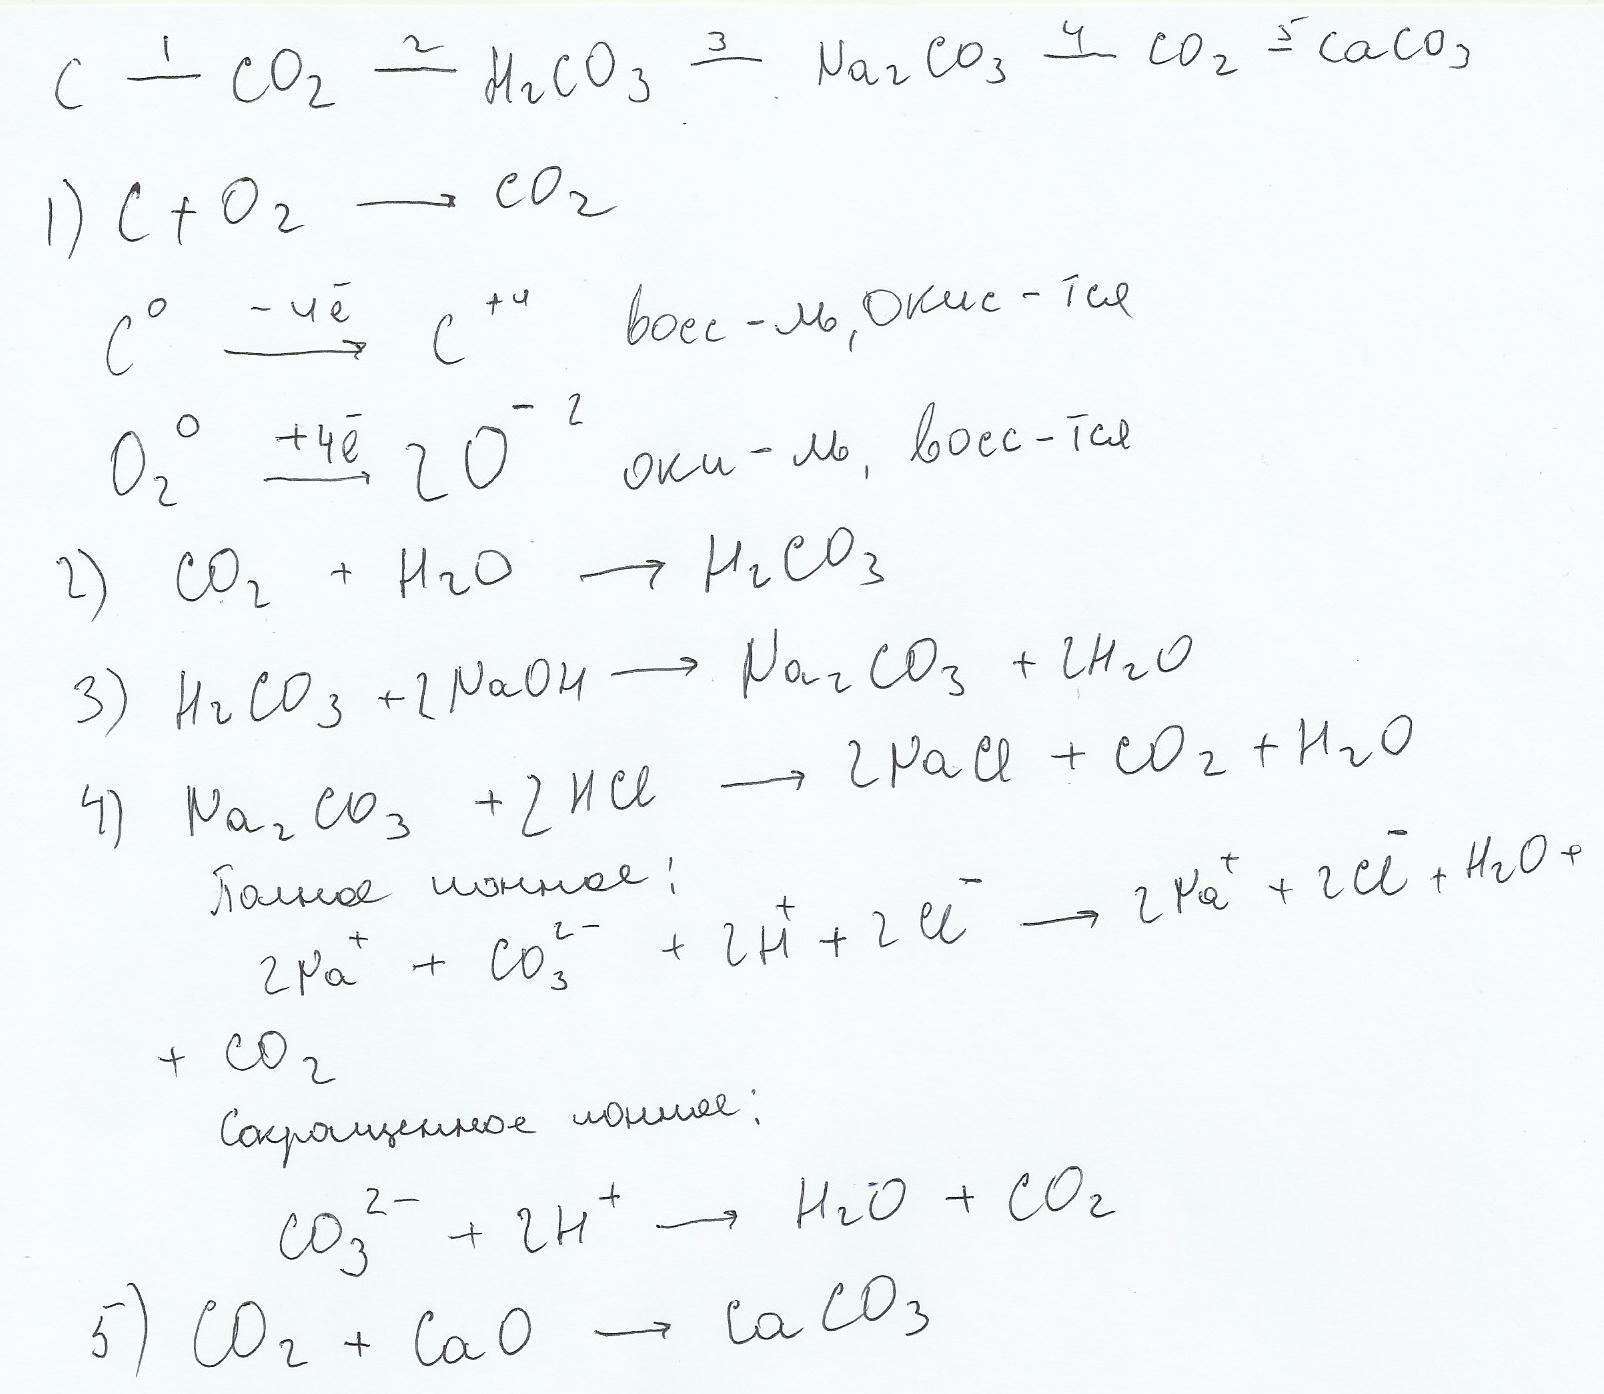 C —1— CO₂ —2— H₂CO₃ —3— Na₂CO₃ —4— CO₂ —5— CaCO₃
1) C + O₂ → CO₂
C⁰ —-4ē→ C⁺⁴ восс-ль, окис-тся
O₂⁰ —+4ē→ 2O⁻² оки-ль, восс-тся
2) CO₂ + H₂O → H₂CO₃
3) H₂CO₃ + 2NaOH → Na₂CO₃ + 2H₂O
4) Na₂CO₃ + 2HCl → 2NaCl + CO₂ + H₂O
Полное ионное:
2Na⁺ + CO₃²⁻ + 2H⁺ + 2Cl⁻ → 2Na⁺ + 2Cl⁻ + H₂O +
+ CO₂
Сокращенное ионное:
CO₃²⁻ + 2H⁺ → H₂O + CO₂
5) CO₂ + CaO → CaCO₃